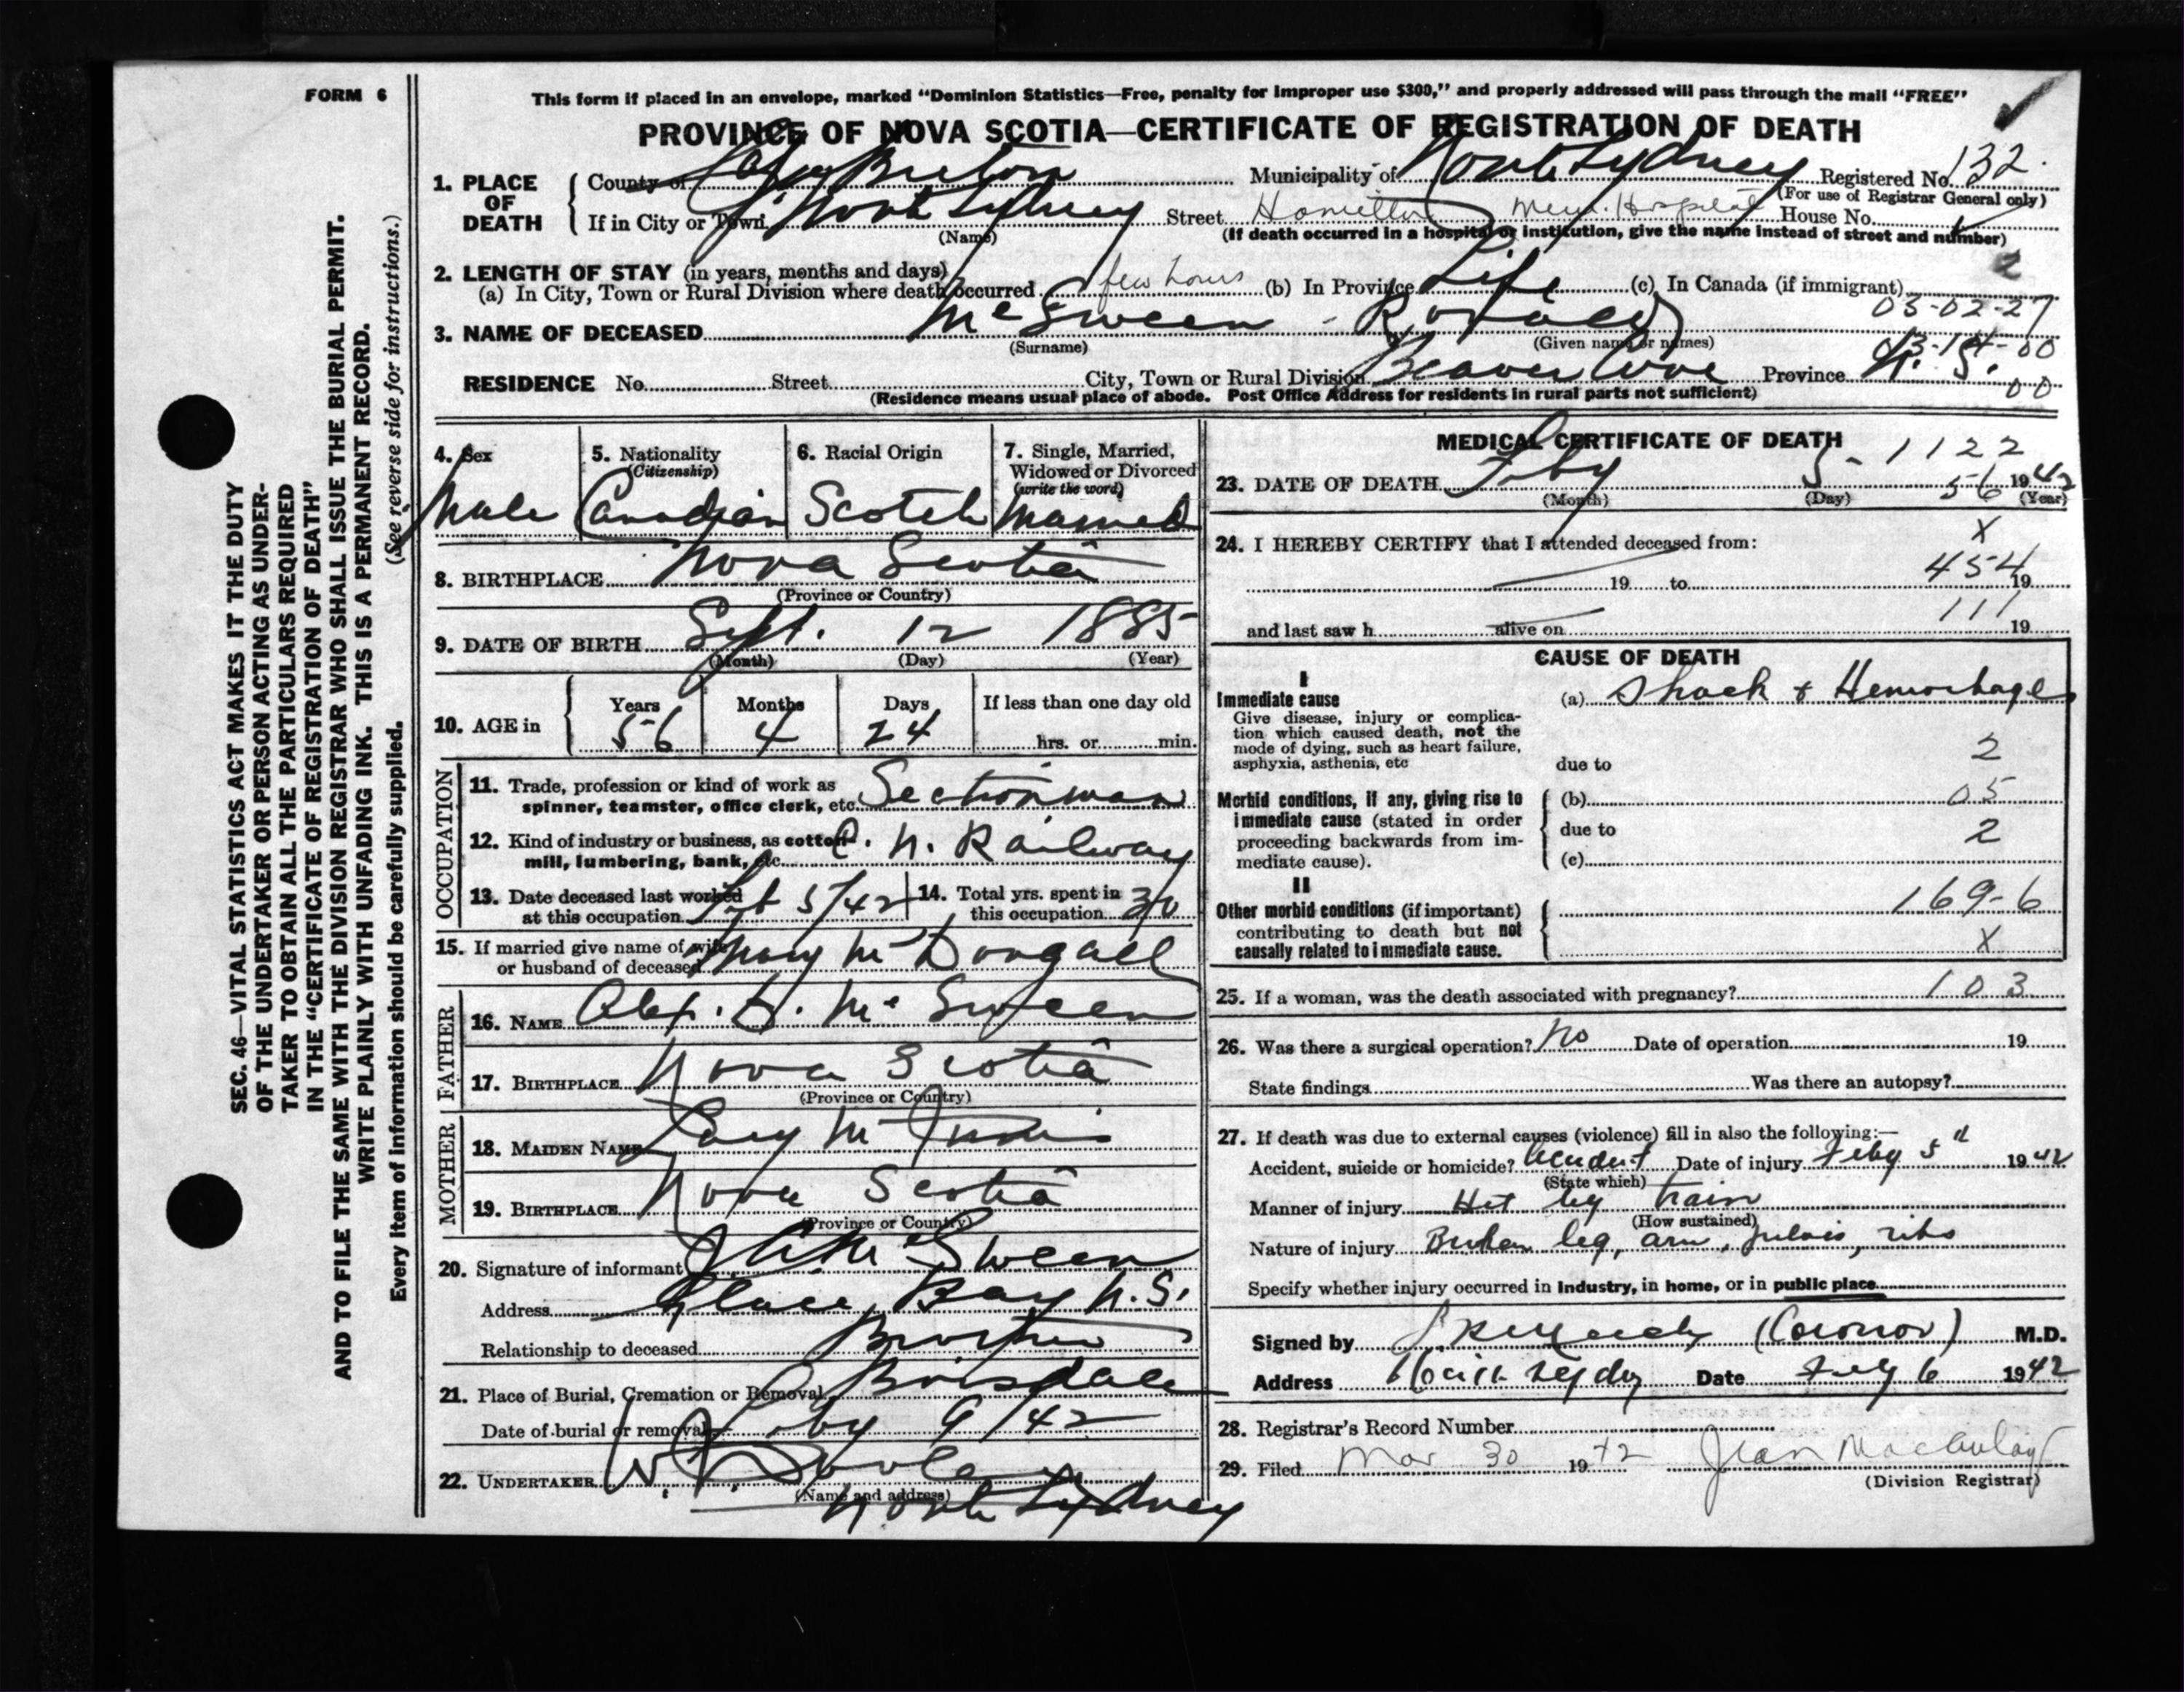 FORM 6
This form if placed in an envelope, marked “Dominion Statistics—Free, penalty for improper use $300,” and properly addressed will pass through the mail “FREE”
PROVINCE OF NOVA SCOTIA—CERTIFICATE OF REGISTRATION OF DEATH
SEC. 46—VITAL STATISTICS ACT MAKES IT THE DUTY
OF THE UNDERTAKER OR PERSON ACTING AS UNDER-
TAKER TO OBTAIN ALL THE PARTICULARS REQUIRED
IN THE “CERTIFICATE OF REGISTRATION OF DEATH”
AND TO FILE THE SAME WITH THE DIVISION REGISTRAR WHO SHALL ISSUE THE BURIAL PERMIT.
WRITE PLAINLY WITH UNFADING INK. THIS IS A PERMANENT RECORD.
Every item of information should be carefully supplied. (See reverse side for instructions.)
1. PLACE OF DEATH
County of Cape Breton Municipality of North Sydney Registered No. 132.
(For use of Registrar General only)
If in City or Town North Sydney Street Hamilton Mem. Hospital House No.
(Name) (If death occurred in a hospital or institution, give the name instead of street and number)
2
2. LENGTH OF STAY (in years, months and days)
(a) In City, Town or Rural Division where death occurred few hours (b) In Province Life (c) In Canada (if immigrant)
03-02-27
3. NAME OF DECEASED McSween - Ronald
(Surname) (Given name or names)
03-14-00
RESIDENCE No. Street City, Town or Rural Division Beaver Cove Province N. S.
00
(Residence means usual place of abode. Post Office Address for residents in rural parts not sufficient)
4. Sex
Male
5. Nationality
(Citizenship)
Canadian
6. Racial Origin
Scotch
7. Single, Married,
Widowed or Divorced
(write the word)
Married
8. BIRTHPLACE Nova Scotia
(Province or Country)
9. DATE OF BIRTH Sept. 12 1885
(Month) (Day) (Year)
10. AGE in
Years Months Days If less than one day old
56 4 24 hrs. or min.
OCCUPATION
11. Trade, profession or kind of work as
spinner, teamster, office clerk, etc. Sectionman
12. Kind of industry or business, as cotton
mill, lumbering, bank, etc. C. N. Railway
13. Date deceased last worked
at this occupation Feb 5/42
14. Total yrs. spent in
this occupation 30
15. If married give name of wife
or husband of deceased Mary McDougall
FATHER
16. NAME Alex. H. McSween
17. BIRTHPLACE Nova Scotia
(Province or Country)
MOTHER
18. MAIDEN NAME
19. BIRTHPLACE Nova Scotia
(Province or Country)
20. Signature of informant McSween
Address Glace Bay N.S.
Relationship to deceased Brother
21. Place of Burial, Cremation or Removal Boisdale
Date of burial or removal Feby 9/42
22. UNDERTAKER
(Name and address)
North Sydney
MEDICAL CERTIFICATE OF DEATH
1122
23. DATE OF DEATH Feby 5 - 1942
(Month) (Day) (Year)
56
24. I HEREBY CERTIFY that I attended deceased from:
X
19 to 19
454
and last saw h alive on 19
111
CAUSE OF DEATH
I
Immediate cause
Give disease, injury or complica-
tion which caused death, not the
mode of dying, such as heart failure,
asphyxia, asthenia, etc
(a) Shock + Hemorhage
due to 2
Morbid conditions, if any, giving rise to
immediate cause (stated in order
proceeding backwards from im-
mediate cause).
(b) 05
due to 2
(c)
II
Other morbid conditions (if important)
contributing to death but not
causally related to immediate cause.
169-6
X
25. If a woman, was the death associated with pregnancy? 103
26. Was there a surgical operation? No Date of operation 19
State findings Was there an autopsy?
27. If death was due to external causes (violence) fill in also the following:—
Accident, suicide or homicide? Accident Date of injury Feby 5th 1942
(State which)
Manner of injury Hit by train
(How sustained)
Nature of injury Broken leg, arm, pelvis, ribs
Specify whether injury occurred in Industry, in home, or in public place
Signed by (Coronor) M.D.
Address North Sydney Date Feby 6 1942
28. Registrar's Record Number
29. Filed Mar 30 1942 Jean
(Division Registrar)